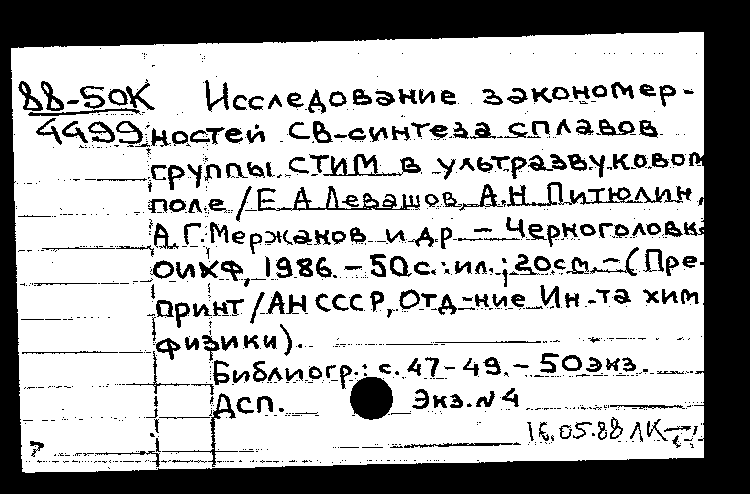 88-50К Исследование закономер-
4499 ностей СВ-синтеза сплавов
группы СТИМ в ультразвуковом
поле / Е.А.Левашов, А.Н. Питюлин,
А.Г.Мержанов и др. – Черноголовка
ОИХФ, 1986. – 50с.: ил.; 20см. – (Пре-
принт / АН СССР, Отд-ние Ин-та хим
физики).
Библиогр.: с. 47-49. – 50экз.
ДСП. Экз. №4
16.05.88 ЛК